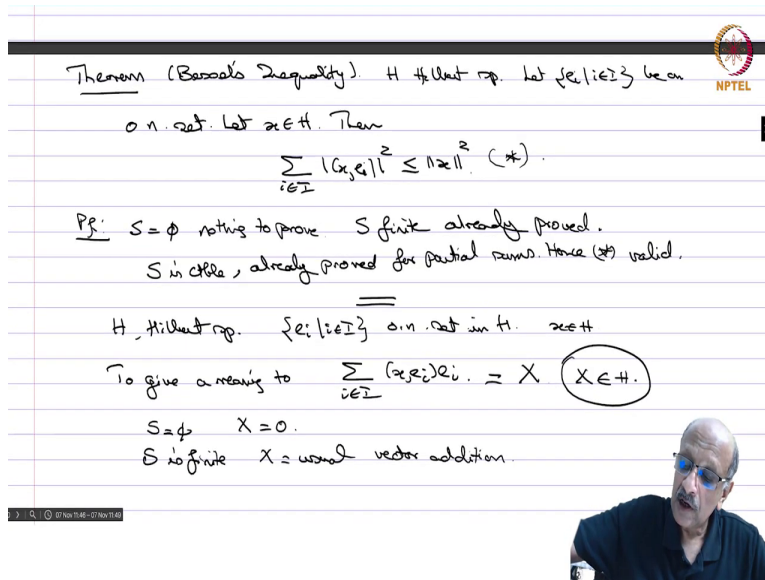 Theorem (Bessel's Inequality). H Hilbert sp. Let {e_i | i∈I} be an
NPTEL
o.n. set. Let x∈H. Then
∑_{i∈I} |(x,e_i)|² ≤ ||x||². (*)
Pf: S=φ nothing to prove. S finite already proved.
S is ctble, already proved for partial sums. Hence (*) valid.
H, Hilbert sp. {e_i | i∈I} o.n. set in H. x∈H
To give a meaning to ∑_{i∈I} (x,e_i)e_i. = X X∈H.
S=φ X=0.
S is finite X = usual vector addition.
07 Nov 11:46 – 07 Nov 11:49